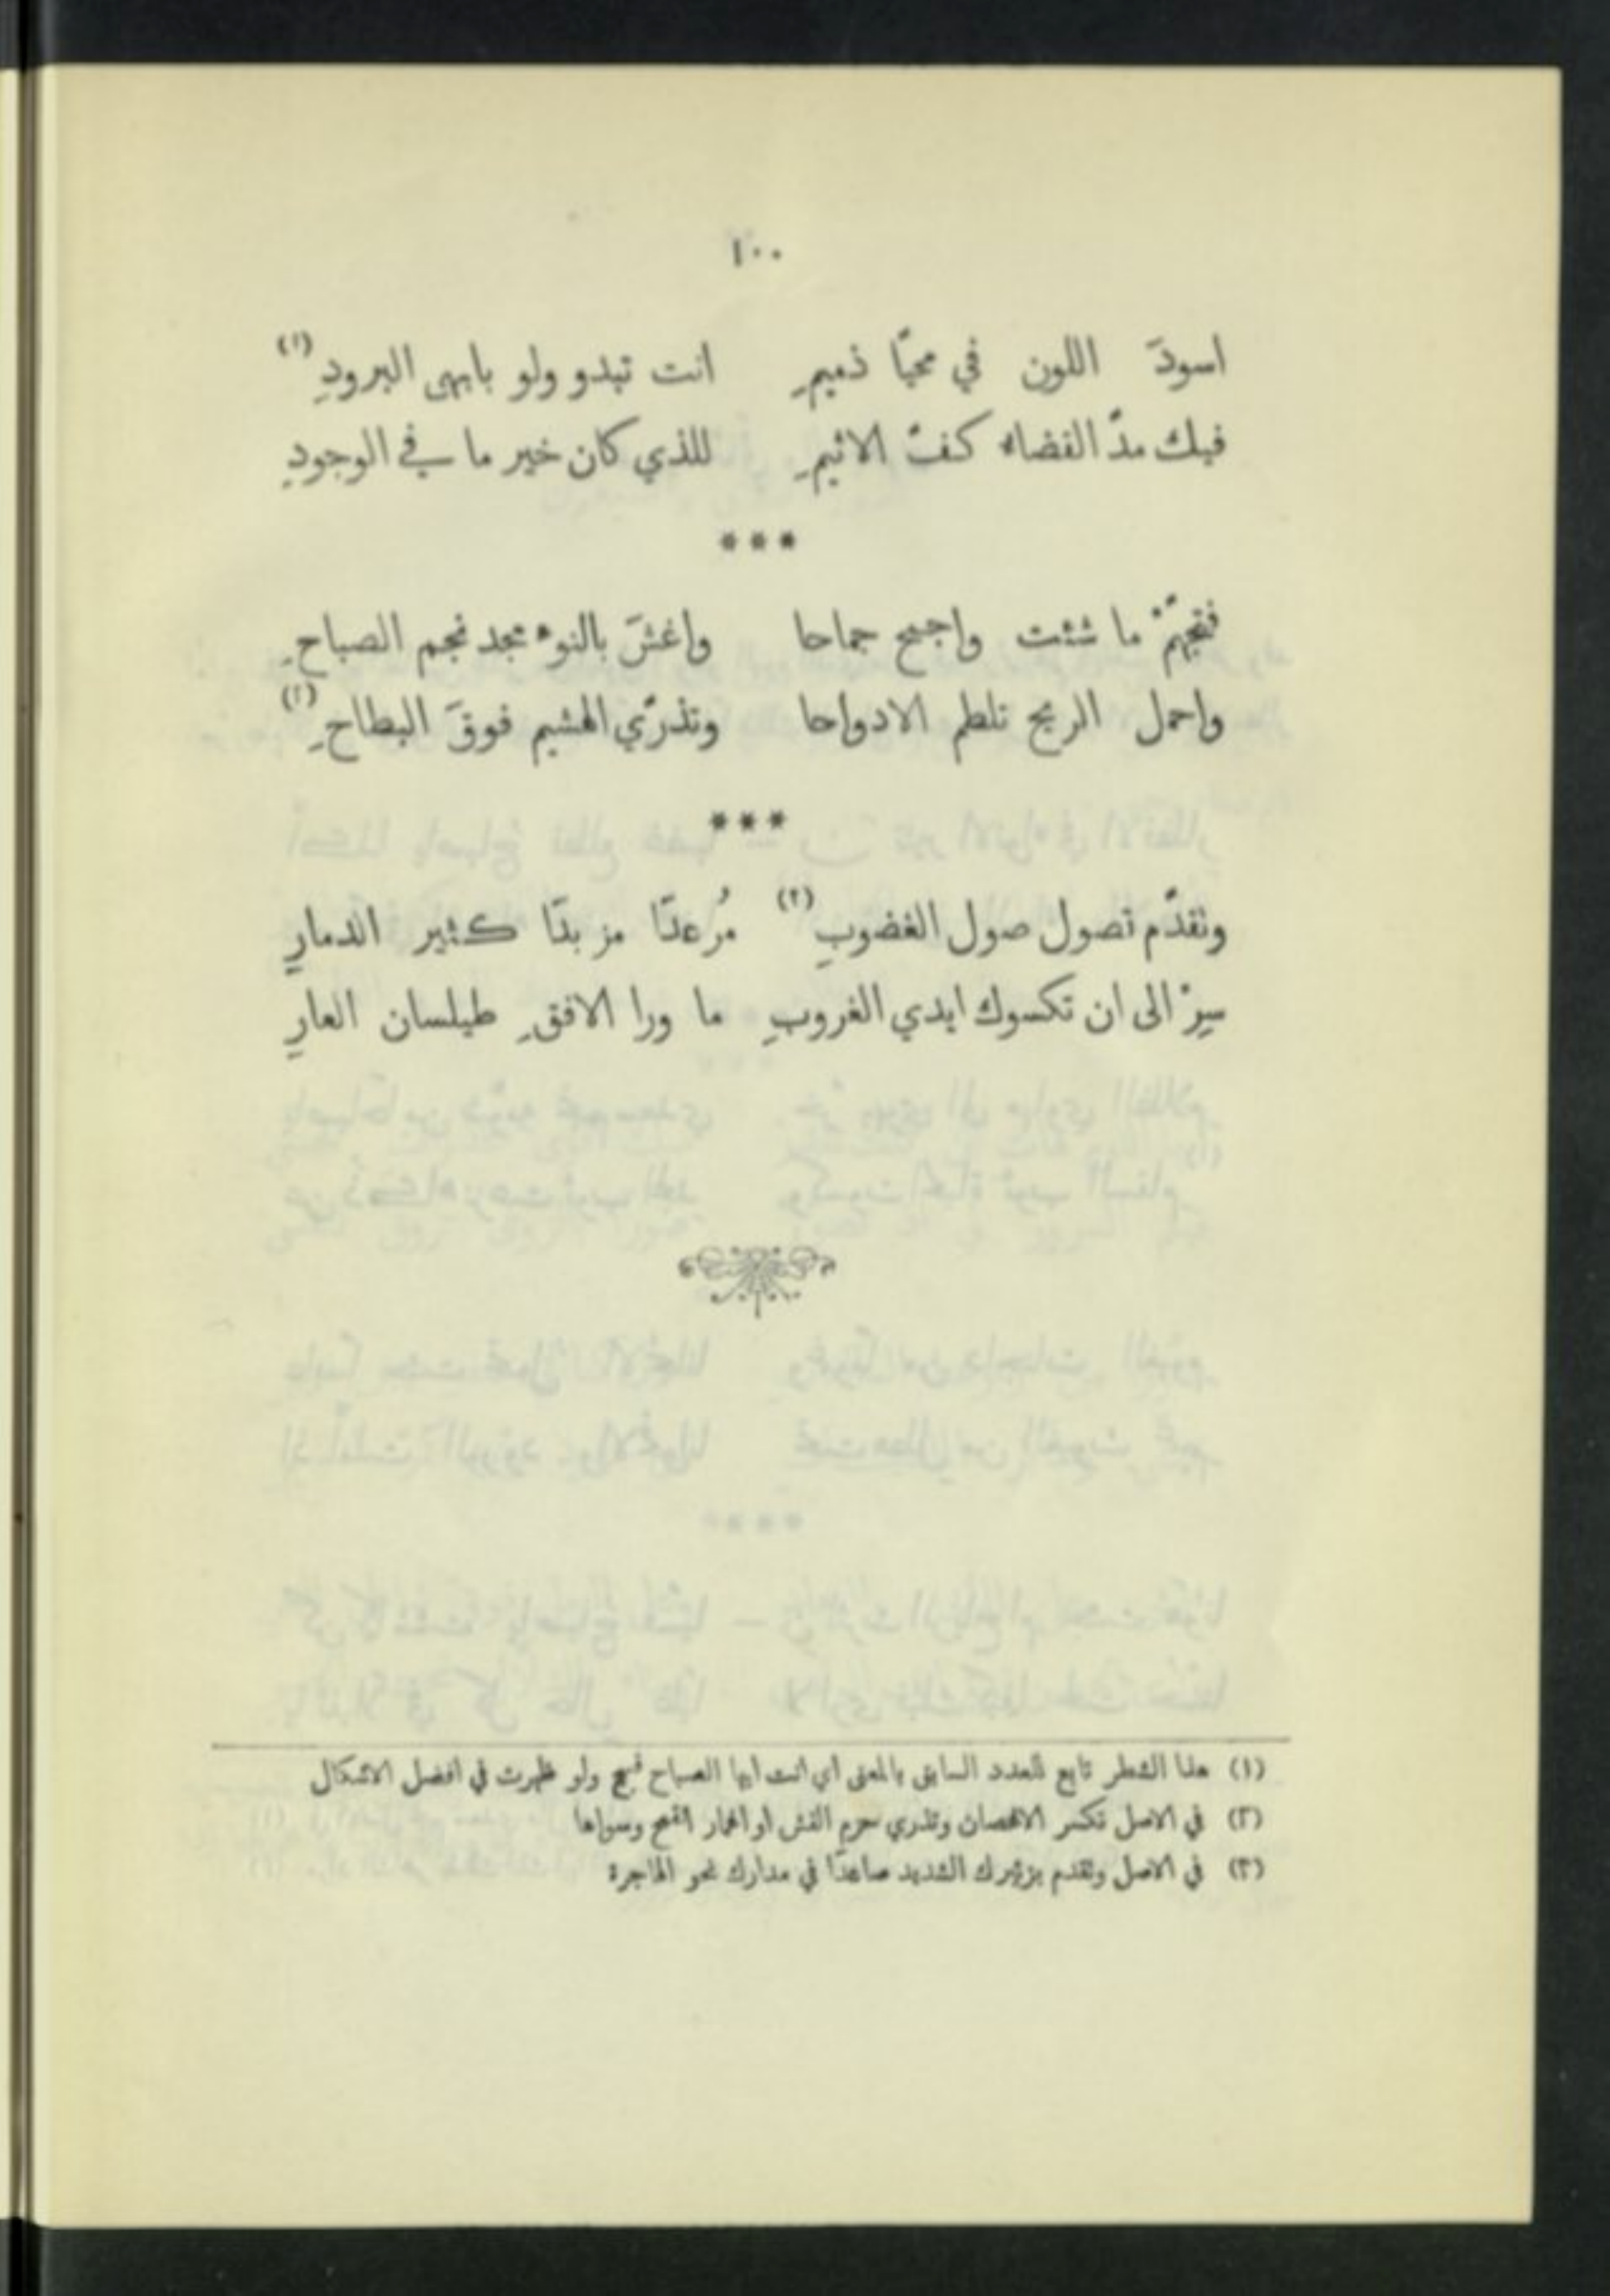 ١٠٠
اسودَ اللون في محيّا ذميمِ انت تبدو ولو بابهى البرودِ (١)
فيك مدّ القضاء كفّ الاثيمِ للذي كان خير ما في الوجودِ
***
فتجهّمْ ما شئت واجمح جماحا واغشَ بالنوء مجد نجم الصباحِ
واحمل الريح تلطم الادواحا وتذرّي الهشيم فوقَ البطاحِ (٢)
***
وتقدّم تصول صول الغضوبِ (٣) مُرعدًا مزبدًا كثير الدمارِ
سِرْ الى ان تكسوك ايدي الغروبِ ما ورا الافقِ طيلسان العارِ
(١) هذا الشطر تابع للعدد السابق بالمعنى اي انت ايها الصباح قبيح ولو ظهرت في افضل الاشكال
(٢) في الاصل تكسر الاغصان وتذري حزم القش او اغمار القمح وسواها
(٣) في الاصل وتقدم بزئيرك الشديد صاعدًا في مدارك نحو الهاجرة